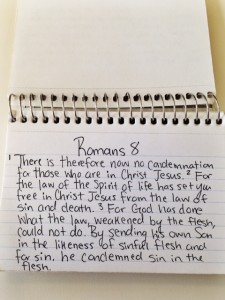 Romans 8
1 There is therefore now no condemnation
for those who are in Christ Jesus. 2 For
the law of the Spirit of life has set you
free in Christ Jesus from the law of
sin and death. 3 For God has done
what the law, weakened by the flesh,
could not do. By sending his own Son
in the likeness of sinful flesh and
for sin, he condemned sin in the
flesh.